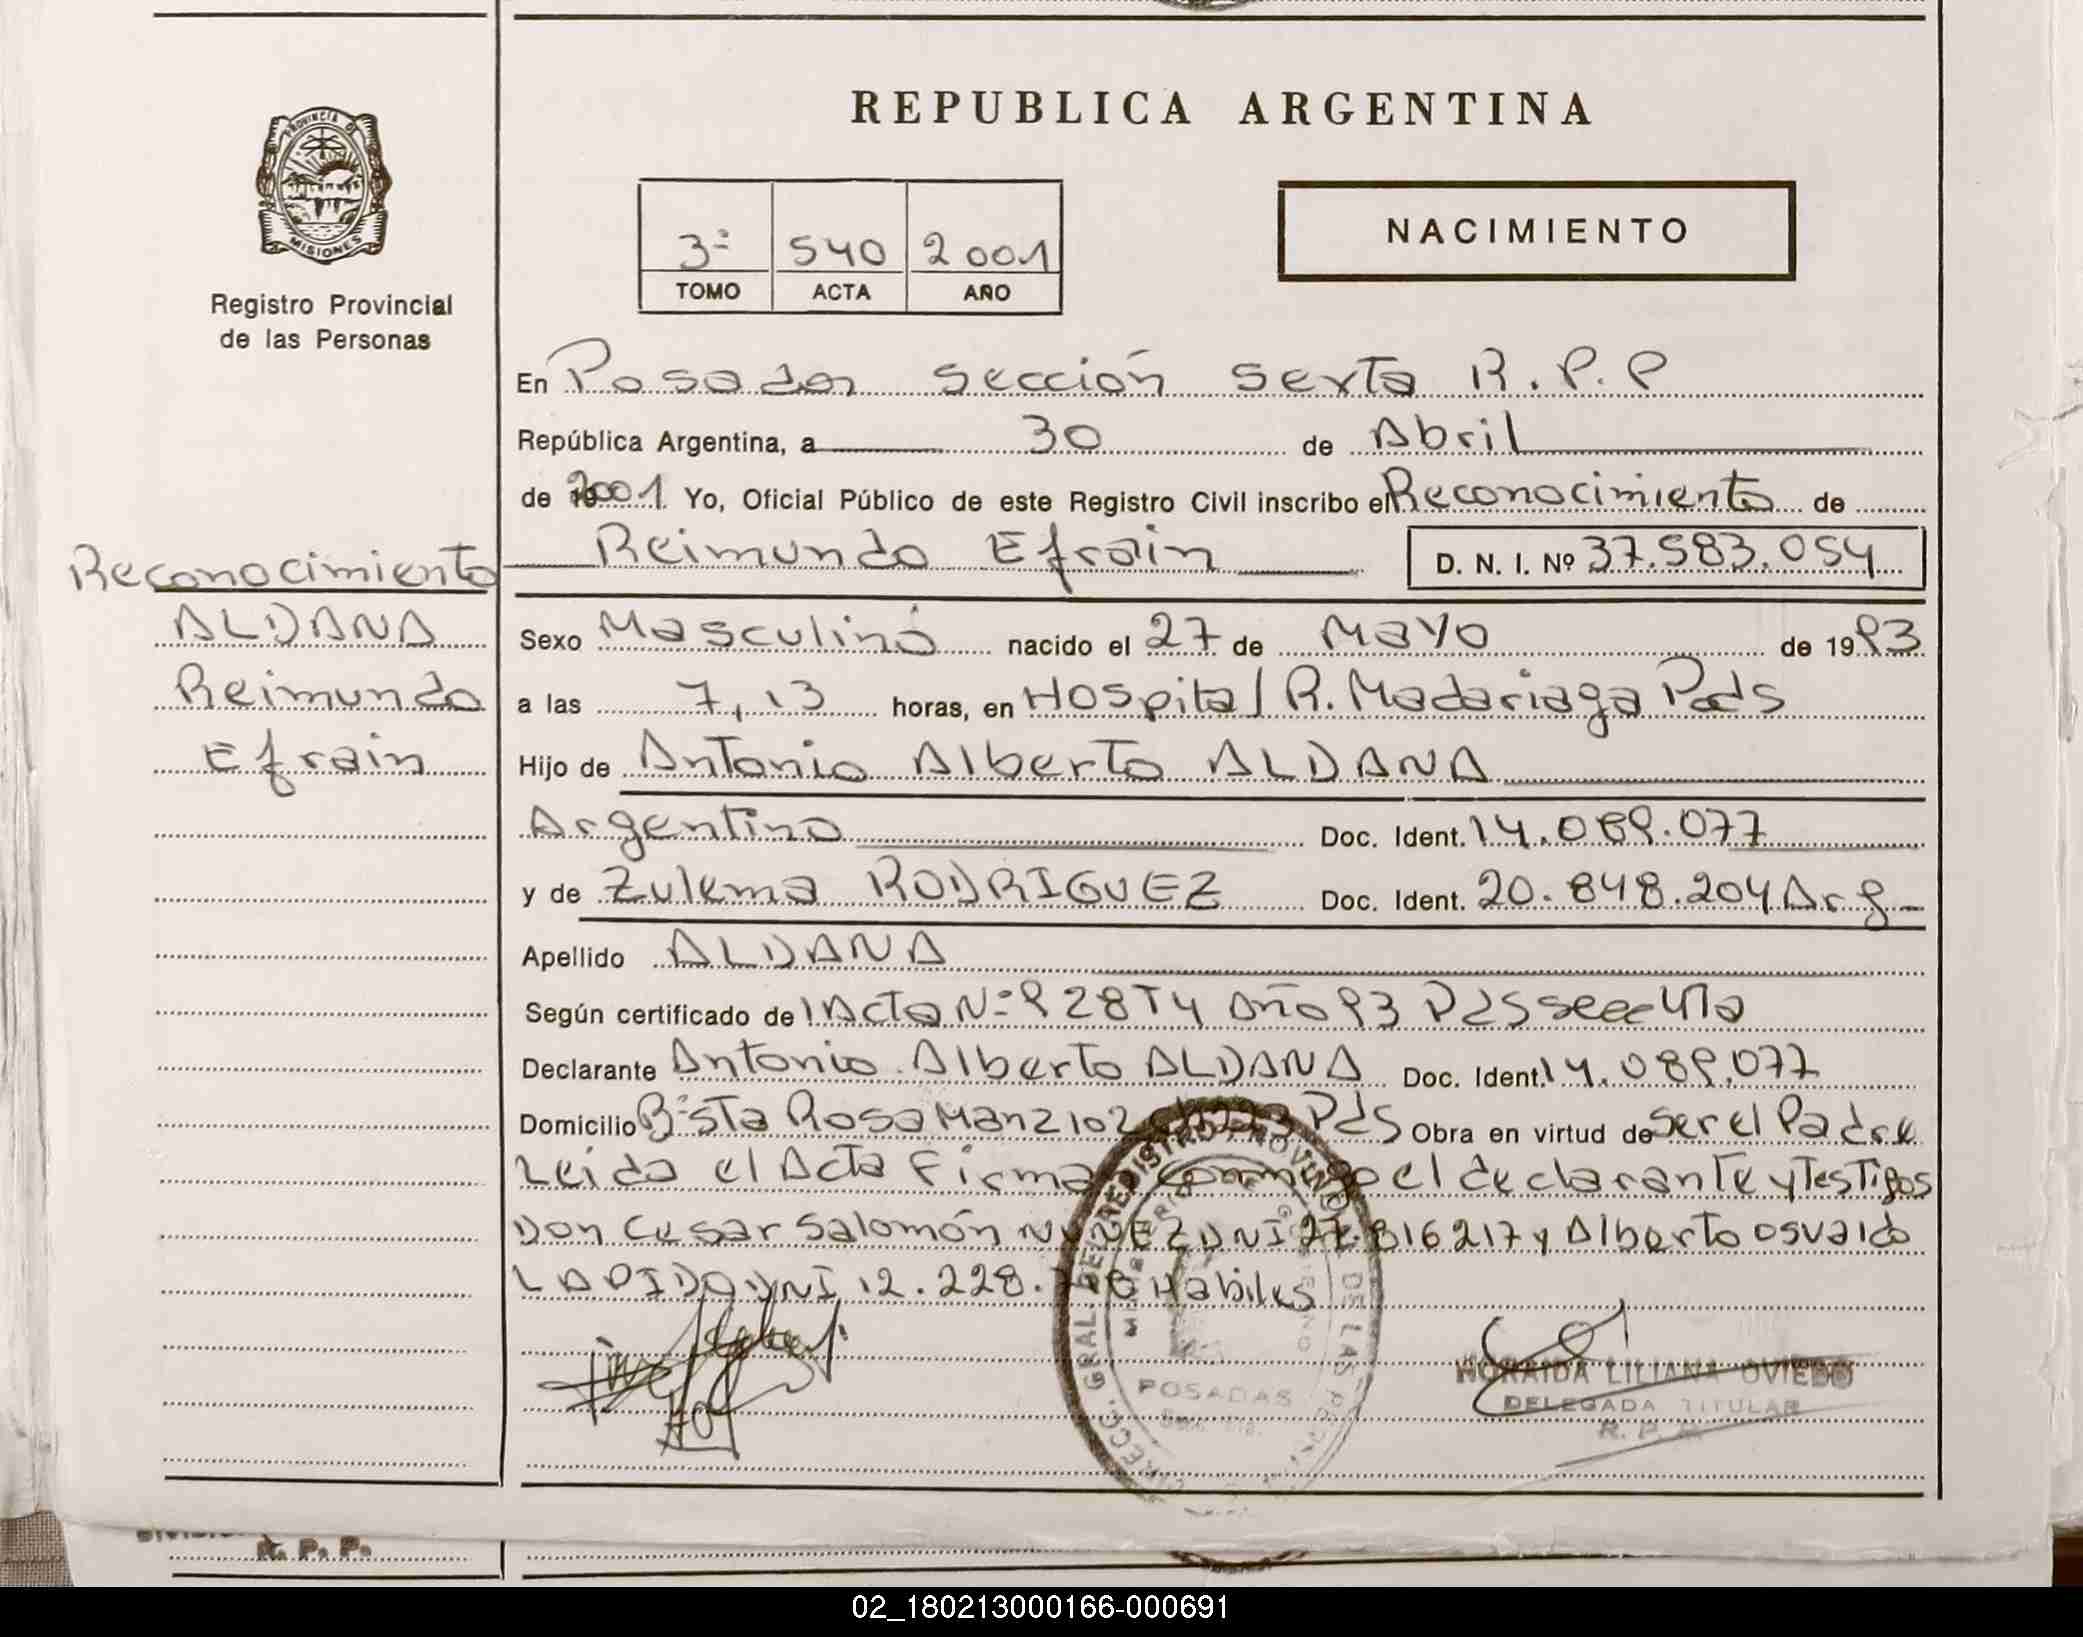 REPUBLICA ARGENTINA
PROVINCIA D
MISIONES
Registro Provincial
de las Personas
NACIMIENTO
3º 540 2001
TOMO ACTA AÑO
En Posadas sección sexta R.P.P
República Argentina, a 30 de Abril
de 2001 Yo, Oficial Público de este Registro Civil inscribo el Reconocimiento de
Reimundo Efrain D. N. I. Nº 37.583.054
Reconocimiento
ALDANA
Reimundo
Efrain
Sexo Masculino nacido el 27 de Mayo de 1993
a las 7,13 horas, en Hospital R. Madariaga Pds
Hijo de Antonio Alberto ALDANA
Argentino Doc. Ident. 14.089.077
y de Zulema RODRIGUEZ Doc. Ident. 20.848.204 Arg
Apellido ALDANA
Según certificado de Acta Nº 928 T4 Año 93 Pds secc 4ta
Declarante Antonio Alberto ALDANA Doc. Ident. 14.089.077
Domicilio Bº Sta Rosa Manz 102 Pds Obra en virtud de ser el Padre
Leida el Acta Firma conmigo el declarante y Testigos
Don Cesar Salomón NUÑEZ DNI 27.816217 y Alberto Osvaldo
LAPIDO DNI 12.228. Habiles
DIRECC. GRAL. DEL REGISTRO PROVINC DE LAS PERSONAS
POSADAS
HORAIDA LILIANA OVIEDO
DELEGADA TITULAR
R. P. P.
R. P. P.
02_180213000166-000691